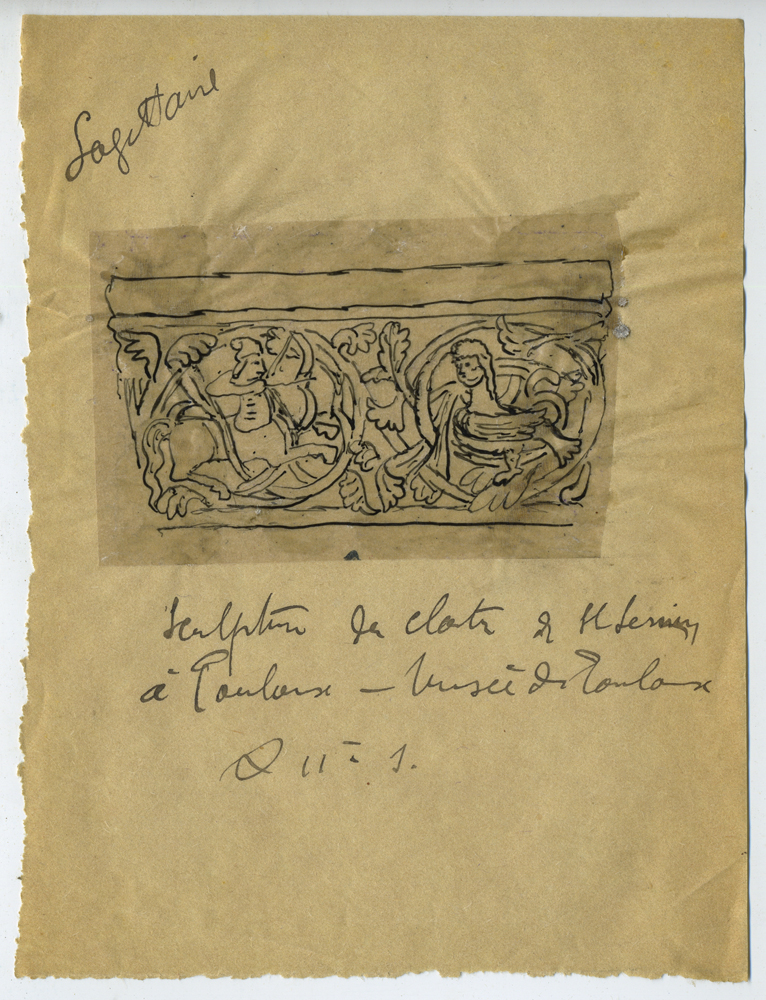 Sagittaire
Sculpture du cloitre de St Sernin
à Toulouse – Musée de Toulouse
11e s.